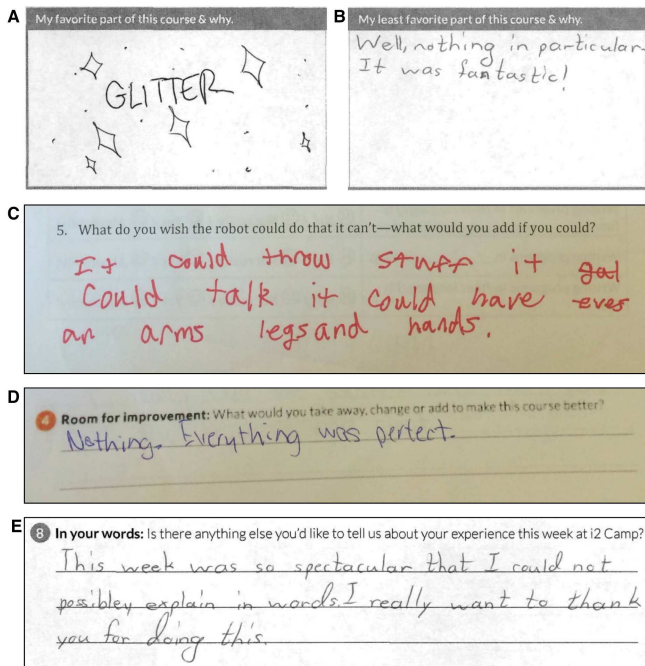 A
My favorite part of this course & why.
GLITTER
B
My least favorite part of this course & why.
Well, nothing in particular
It was fantastic!
C
5. What do you wish the robot could do that it can't—what would you add if you could?
It could throw stuff it
Could talk it could have
an arms legs and hands.
D
4 Room for improvement: What would you take away, change or add to make this course better?
Nothing. Everything was perfect.
E
8 In your words: Is there anything else you'd like to tell us about your experience this week at i2 Camp?
This week was so spectacular that I could not
possibley explain in words. I really want to thank
you for doing this.